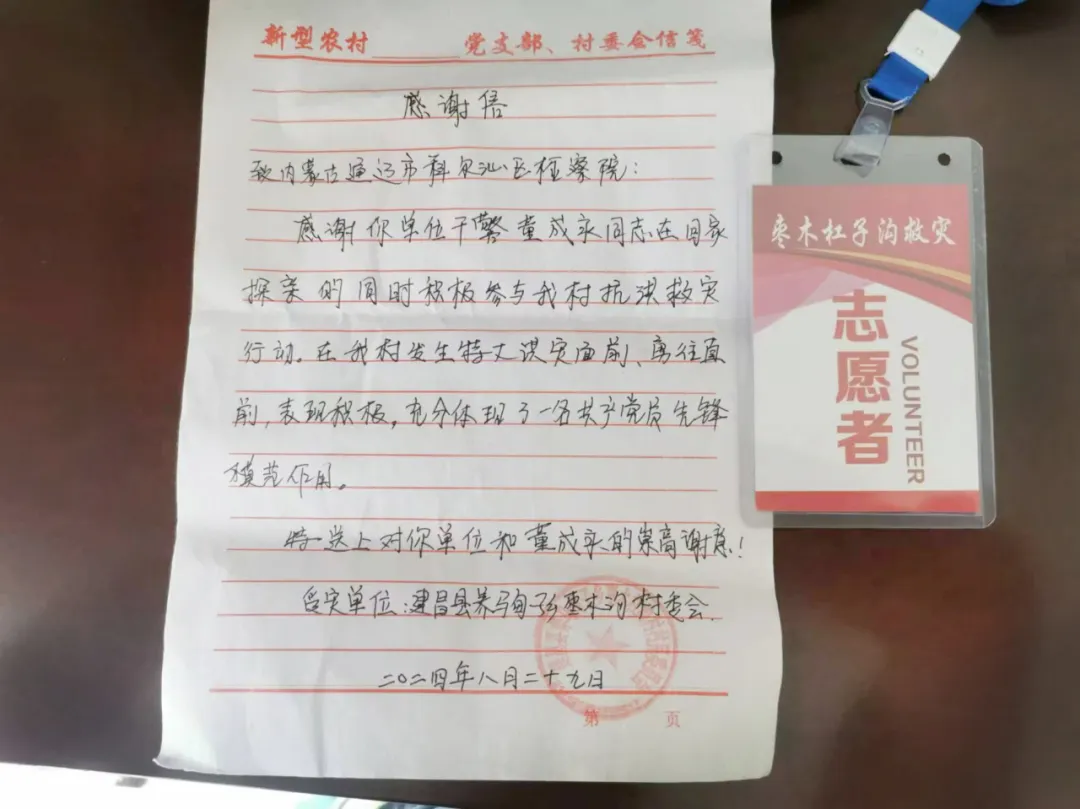 新型农村______党支部、村委会信笺
感谢信
致内蒙古通辽市科尔沁区检察院：
感谢你单位干警董成永同志在回家
探亲的同时积极参与我村抗洪救灾
行动。在我村发生特大洪灾面前、勇往直
前，表现积极，充分体现了一名共产党员先锋
模范作用。
特送上对你单位和董成永的崇高谢意！
受灾单位：建昌县养马甸子乡枣木沟村委会.
二〇二四年八月二十九日
第 页
枣木杠子沟救灾
志愿者
VOLUNTEER